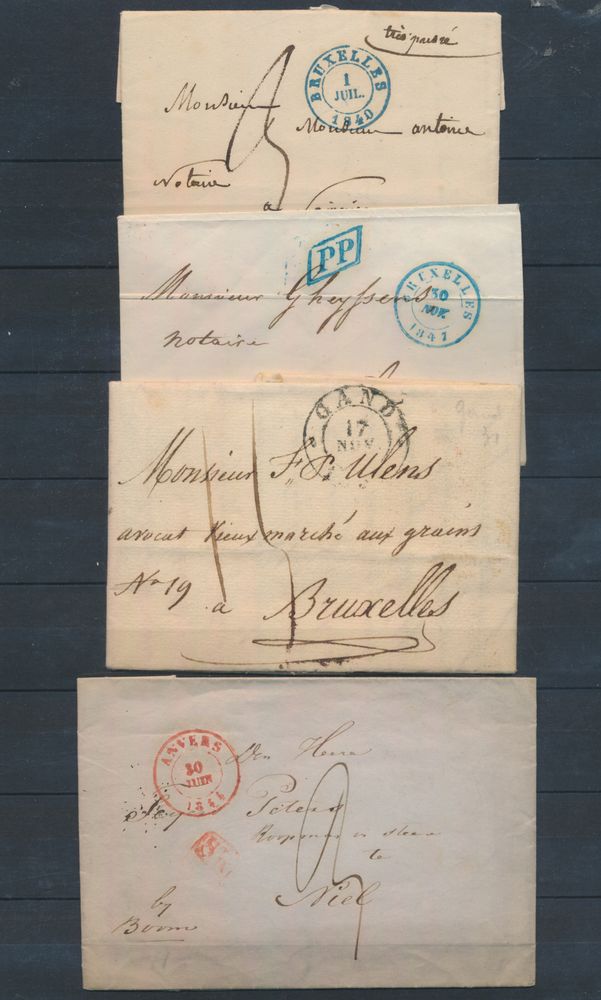 très pressé
BRUXELLES
1
JUIL.
1840
Monsieur
Monsieur antoine
Notaire
a
PP
BRUXELLES
30
NOV
1847
Monsieur Gheyssens
notaire
GAND
17
NOV.
Monsieur F. P. Ulens
avocat Vieux marché aux grains
No 19
a Bruxelles
ANVERS
30
JUIN
184
Den Heere
Peteus
Koopman in steen
te
Niel
by
Boom